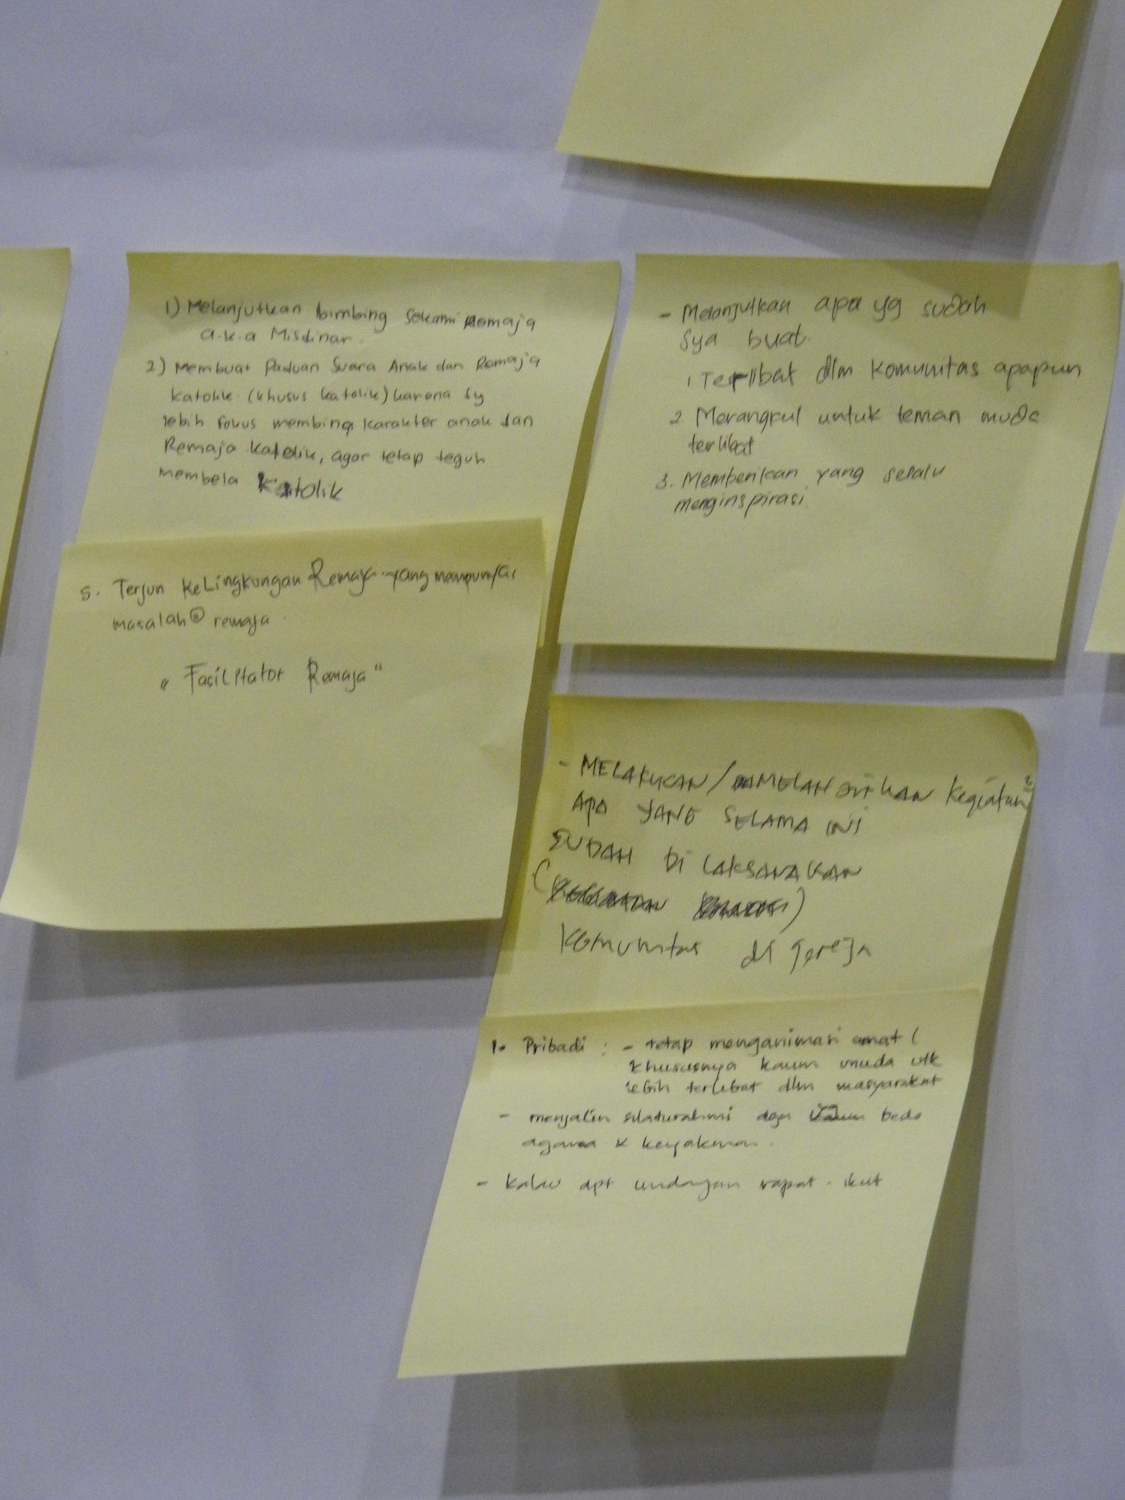 1) Melanjutkan bimbing Sekami Remaja
a.k.a Misdinar.
2) Membuat Paduan Suara Anak dan Remaja
katolik. (khusus katolik) karena sy
lebih fokus membing karakter anak dan
Remaja Katolik, agar tetap teguh
membela Katolik
- Melanjutkan apa yg sudah
sya buat.
1 Terlibat dlm Komunitas apapun
2. Merangkul untuk teman muda
terlibat
3. Memberikan yang selalu
menginspirasi.
5. Terjun KeLingkungan Remaja yang mempunyai
masalah² remaja.
"Fasilitator Remaja"
- MELAKUKAN / MELANJUTKAN Kegiatan²
APA YANG SELAMA INI
SUDAH DI LAKSANAKAN
( )
Komunitas di gereja
1. Pribadi : - tetap menganimasi umat (
khususnya kaum muda utk
lebih terlibat dlm masyarakat
- menjalin silaturahmi dgn beda
agama & keyakinan.
- kalau dpt undangan rapat. ikut